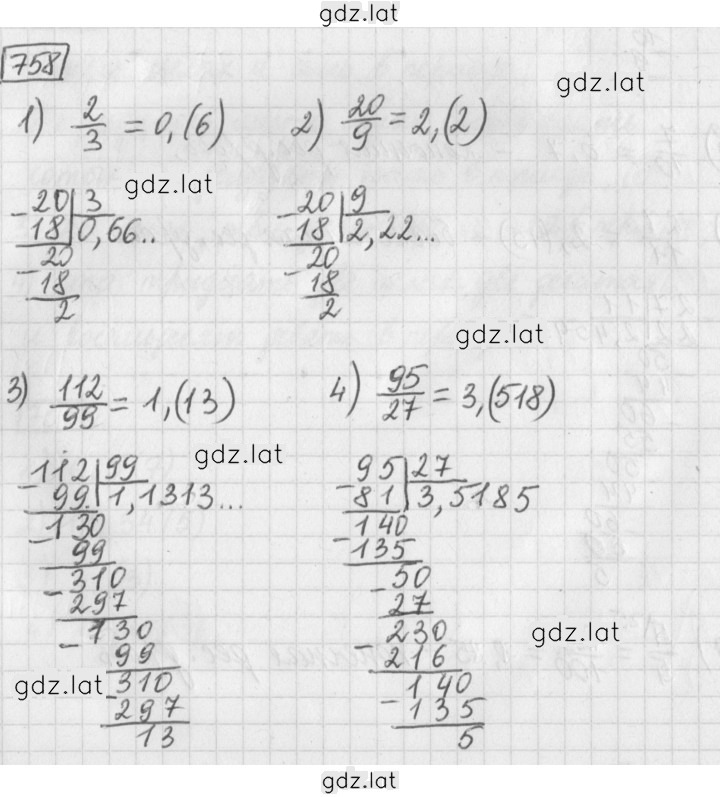 gdz.lat
758
gdz.lat
1) 2/3 = 0,(6)
2) 20/9 = 2,(2)
gdz.lat
-20|3
18|0,66..
-20
18
2
-20|9
18|2,22...
-20
18
2
gdz.lat
3) 112/99 = 1,(13)
4) 95/27 = 3,(518)
gdz.lat
-112|99
99|1,1313...
-130
99
-310
297
-130
99
-310
297
13
-95|27
81|3,5185
-140
135
-50
27
-230
216
-140
135
5
gdz.lat
gdz.lat
gdz.lat